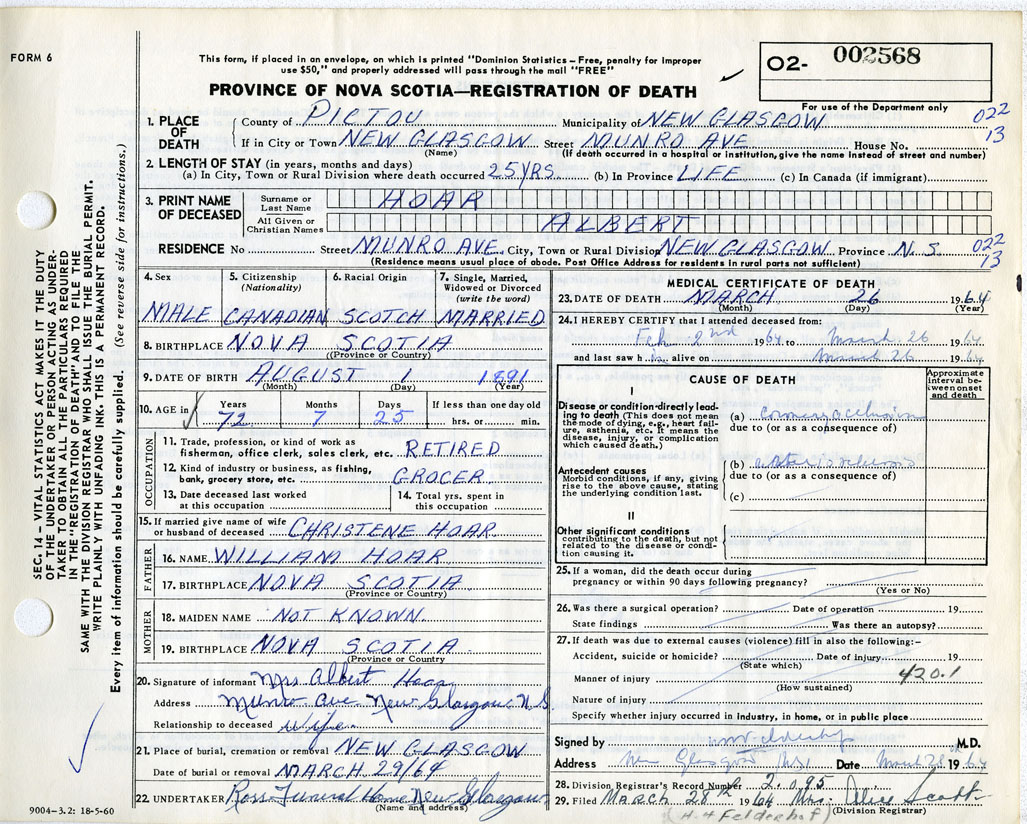 FORM 6
This form, if placed in an envelope, on which is printed "Dominion Statistics – Free, penalty for improper
use $50," and properly addressed will pass through the mail "FREE"
O2- 002568
PROVINCE OF NOVA SCOTIA—REGISTRATION OF DEATH
For use of the Department only
1. PLACE OF DEATH
County of PICTOU Municipality of NEW GLASGOW 022
If in City or Town NEW GLASGOW Street MUNRO AVE House No. 13
(Name) (If death occurred in a hospital or institution, give the name instead of street and number)
2. LENGTH OF STAY (in years, months and days)
(a) In City, Town or Rural Division where death occurred 25 YRS. (b) In Province LIFE (c) In Canada (if immigrant)
3. PRINT NAME OF DECEASED
Surname or Last Name HOAR
All Given or Christian Names ALBERT
RESIDENCE No Street MUNRO AVE. City, Town or Rural Division NEW GLASGOW Province N.S. 022
13
(Residence means usual place of abode. Post Office Address for residents in rural parts not sufficient)
4. Sex 5. Citizenship (Nationality) 6. Racial Origin 7. Single, Married, Widowed or Divorced (write the word)
MALE CANADIAN SCOTCH MARRIED
8. BIRTHPLACE NOVA SCOTIA
(Province or Country)
9. DATE OF BIRTH AUGUST 1 1891
(Month) (Day) (Year)
10. AGE in Years Months Days If less than one day old
72 7 25 hrs. or min.
OCCUPATION
11. Trade, profession, or kind of work as
fisherman, office clerk, sales clerk, etc. RETIRED
12. Kind of industry or business, as fishing,
bank, grocery store, etc. GROCER
13. Date deceased last worked at this occupation
14. Total yrs. spent in this occupation
15. If married give name of wife
or husband of deceased CHRISTENE HOAR
FATHER
16. NAME WILLIAM HOAR
17. BIRTHPLACE NOVA SCOTIA
(Province or Country)
MOTHER
18. MAIDEN NAME NOT KNOWN.
19. BIRTHPLACE NOVA SCOTIA
(Province or Country)
20. Signature of informant Mrs Albert Hoar
Address Munro Ave New Glasgow N.S
Relationship to deceased wife
21. Place of burial, cremation or removal NEW GLASGOW
Date of burial or removal MARCH 29/64
22. UNDERTAKER Ross Funeral Home New Glasgow
(Name and address)
9004-3.2: 18-5-60
MEDICAL CERTIFICATE OF DEATH
23. DATE OF DEATH MARCH 26 1964
(Month) (Day) (Year)
24. I HEREBY CERTIFY that I attended deceased from:
Feb 2nd 1964 to March 26 1964
and last saw h im alive on March 26 1964
CAUSE OF DEATH
Approximate interval between onset and death
I
Disease or condition directly leading to death (This does not mean
the mode of dying, e.g., heart failure, asthenia, etc. It means the
disease, injury, or complication
which caused death.)
(a) coronary occlusion
due to (or as a consequence of)
Antecedent causes
Morbid conditions, if any, giving
rise to the above cause, stating
the underlying condition last.
(b)
due to (or as a consequence of)
(c)
II
Other significant conditions
contributing to the death, but not
related to the disease or condition causing it.
25. If a woman, did the death occur during
pregnancy or within 90 days following pregnancy?
(Yes or No)
26. Was there a surgical operation? Date of operation 19
State findings Was there an autopsy?
27. If death was due to external causes (violence) fill in also the following:–
Accident, suicide or homicide? Date of injury 19
(State which)
Manner of injury 420.1
(How sustained)
Nature of injury
Specify whether injury occurred in industry, in home, or in public place
Signed by M.D.
Address New Glasgow N.S. Date March 28 1964
28. Division Registrar's Record Number 2,095
29. Filed MARCH 28th 1964 Mrs. Alice Scott
(Division Registrar)
H. H Felderhof
SEC. 14 – VITAL STATISTICS ACT MAKES IT THE DUTY
OF THE UNDERTAKER OR PERSON ACTING AS UNDERTAKER TO OBTAIN ALL THE PARTICULARS REQUIRED
IN THE "REGISTRATION OF DEATH" AND TO FILE THE
SAME WITH THE DIVISION REGISTRAR WHO SHALL ISSUE THE BURIAL PERMIT.
WRITE PLAINLY WITH UNFADING INK. THIS IS A PERMANENT RECORD.
Every item of information should be carefully supplied. (See reverse side for instructions.)